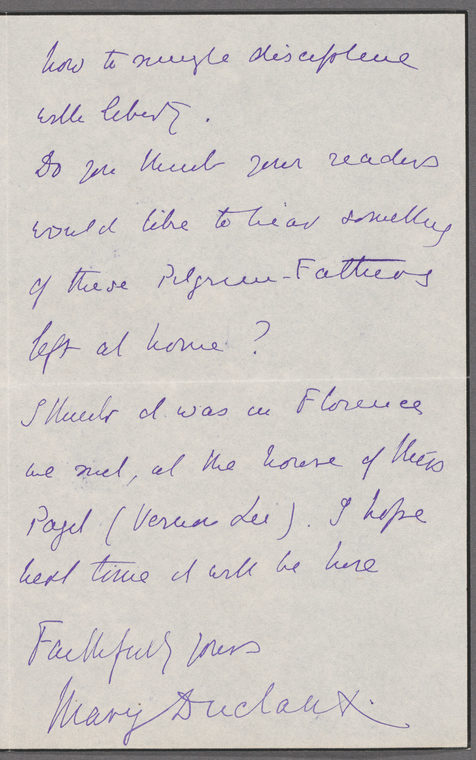 how to mingle discipline
with liberty.
Do you think your readers
would like to hear something
of these Pilgrim-Fathers
left at home?
I think it was in Florence
we met, at the house of Miss
Paget (Vernon Lee). I hope
next time it will be here
Faithfully yours
Mary Duclaux.